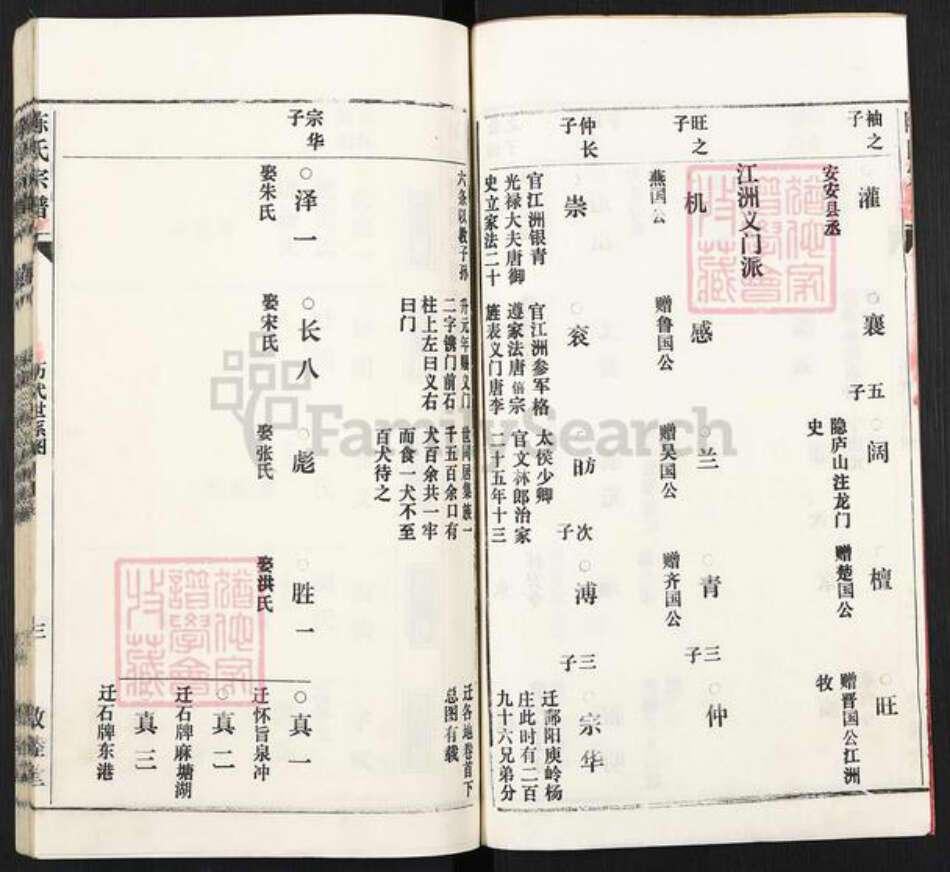 袖之子
灌
安安县丞
襄
五子
阔
隐庐山注龙门史
檀
赠楚国公
旺
赠晋国公江洲牧
江洲义门派
旺之子
机
燕国公
感
赠鲁国公
兰
赠吴国公
青
赠齐国公
三子
仲
仲长子
崇
官江洲银青光禄大夫唐御史立家法二十六条以教子孙
衮
官江洲参军格遵家法唐僖宗旌表义门唐李升元年赐义门二字镌门前石柱上左曰义右曰门
昉
太侯少卿官文林郎治家二十五年十三世同居集族一千五百余口有犬百余共一牢而食一犬不至百犬待之
次子
溥
三子
宗华
迁鄱阳庾岭杨庄此时有二百九十六兄弟分迁各地卷首下总图有载
宗华子
泽一
娶朱氏
长八
娶宋氏
彪
娶张氏
胜一
娶洪氏
真一
迁怀旨泉冲
真二
迁石牌麻塘湖
真三
迁石牌东港
陈氏宗谱
历代世系图
三
敦睦堂
FamilySearch